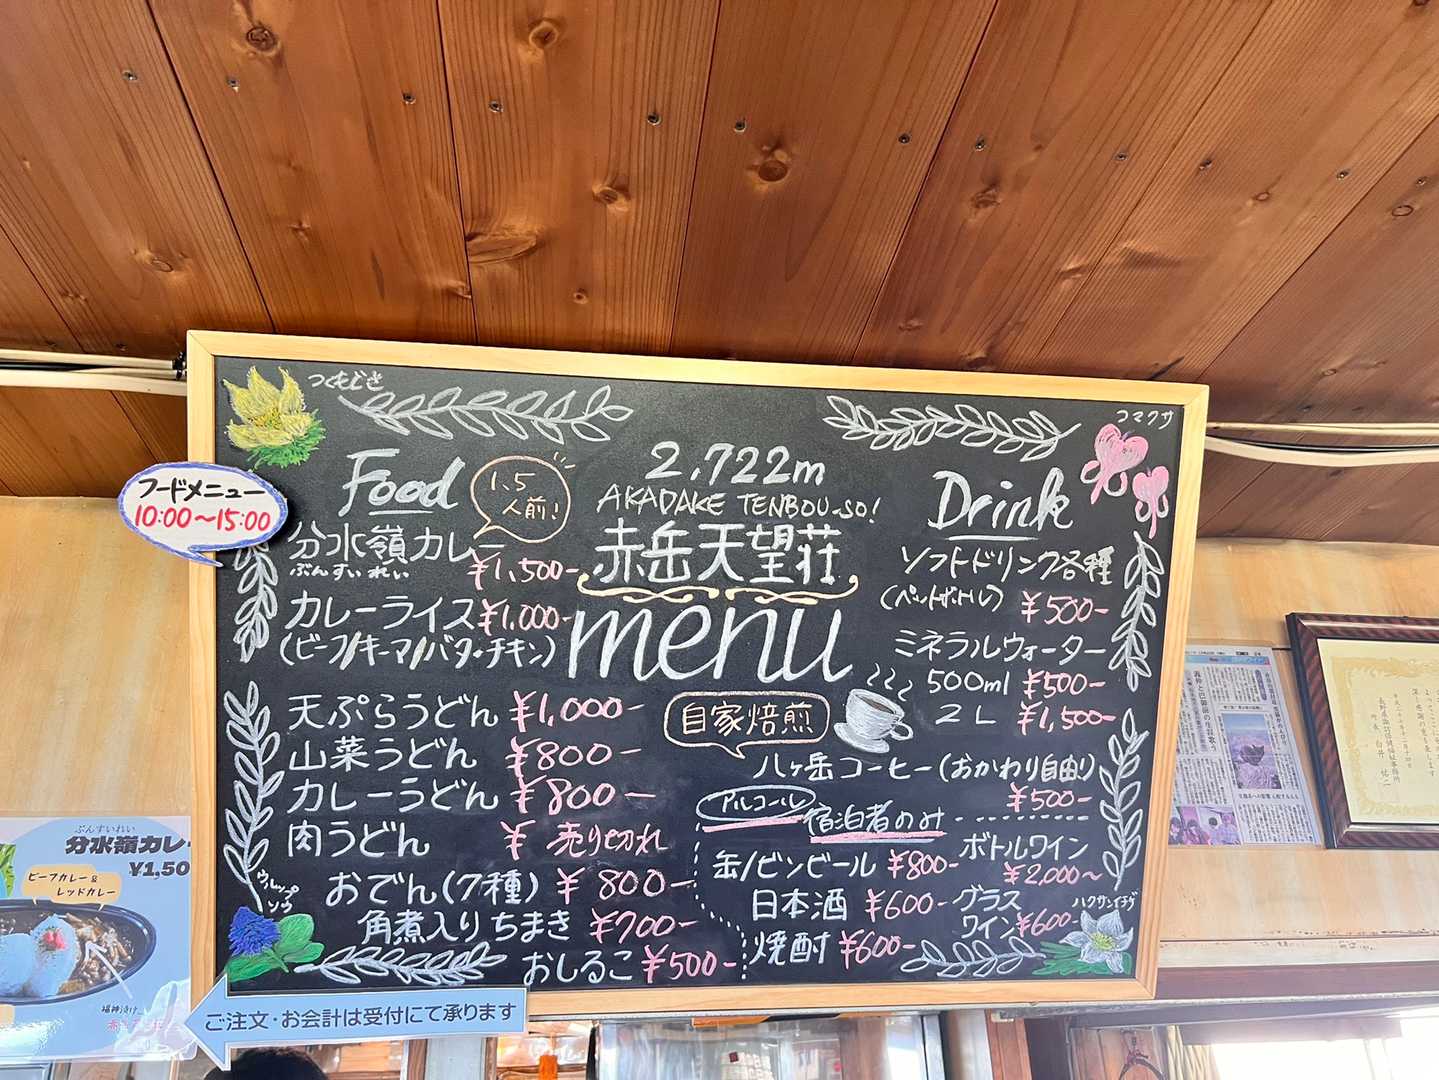 つくもぐさ
コマクサ
フードメニュー
10:00～15:00
Food
1.5
人前!
分水嶺カレー
ぶんすいれい
¥1,500-
カレーライス ¥1,000-
(ビーフ/キーマ/バター・チキン)
天ぷらうどん ¥1,000-
山菜うどん ¥800-
カレーうどん ¥800-
肉うどん ¥ 売り切れ
おでん(7種) ¥800-
角煮入りちまき ¥700-
おしるこ ¥500-
ウルップソウ
2,722m
AKADAKE TENBOU-SO!
赤岳天望荘
menu
Drink
ソフトドリンク各種
(ペットボトル) ¥500-
ミネラルウォーター
500ml ¥500-
2L ¥1,500-
自家焙煎
八ヶ岳コーヒー(おかわり自由)
¥500-
アルコール
宿泊者のみ
缶/ビンビール ¥800-
日本酒 ¥600-
焼酎 ¥600-
ボトルワイン
¥2,000～
グラス
ワイン ¥600-
ハクサンイチゲ
ご注文・お会計は受付にて承ります
ぶんすいれい
分水嶺カレー
¥1,50
ビーフカレー&
レッドカレー
福神漬け